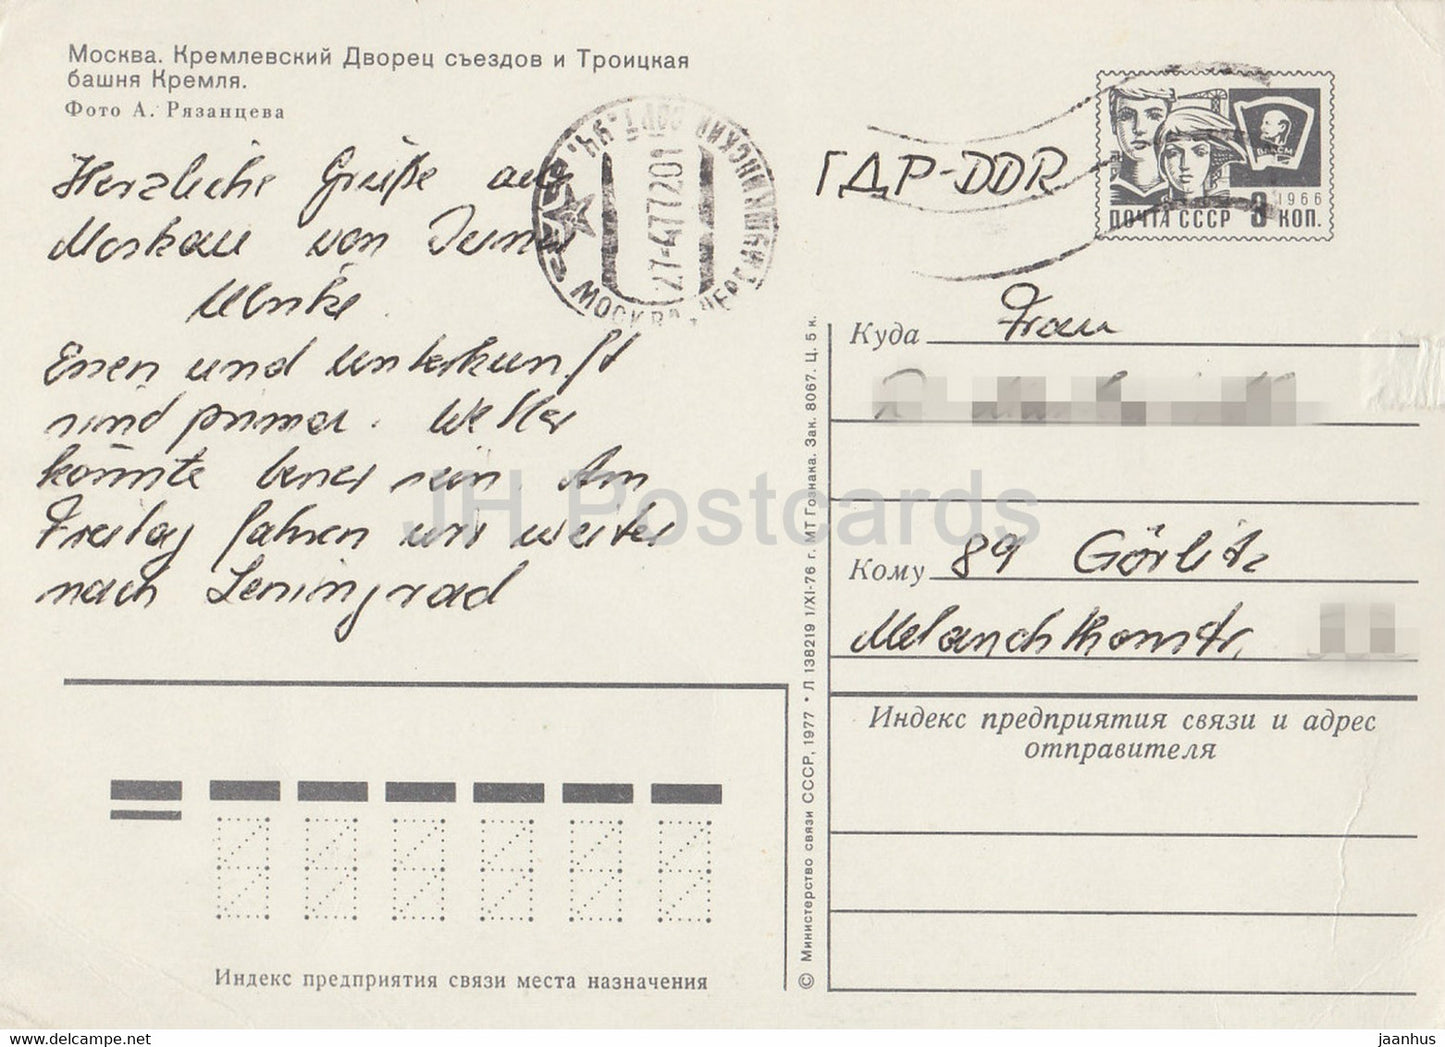 Москва. Кремлевский Дворец съездов и Троицкая
башня Кремля.
Фото А. Рязанцева
Herzliche Grüße aus
Moskau von Deiner
Ulrike.
Essen und Unterkunft
sind prima. Wetter
könnte besser sein. Am
Freitag fahren wir weiter
nach Leningrad
МОСКВА
27-477201
ГДР-DDR
ВЛКСМ
1966
ПОЧТА СССР 3 КОП.
Куда Frau
Кому 89 Görlitz
Melanchthonstr.
Индекс предприятия связи и адрес
отправителя
Индекс предприятия связи места назначения
© Министерство связи СССР, 1977 • Л 138219 1/XI-76 г. МТ Гознака. Зак. 8067. Ц. 5 к.
JH Postcards
www.hippostcard.com
jaanhus